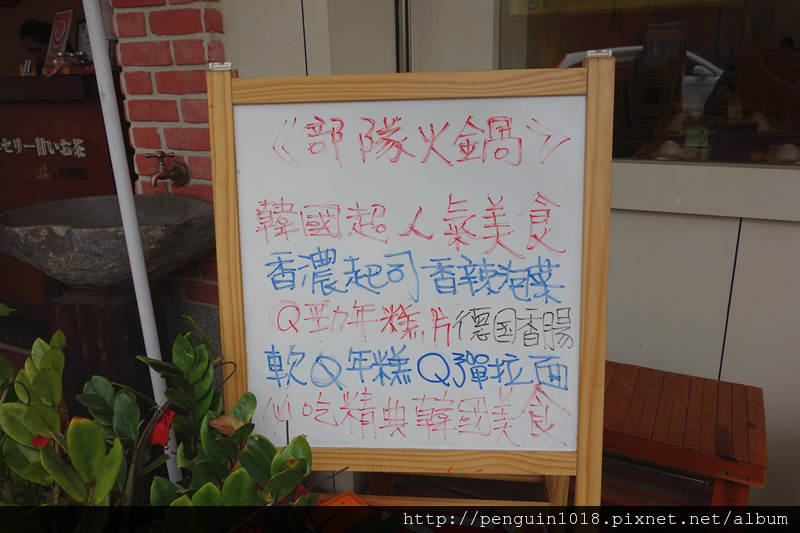 《部隊火鍋》
韓國超人氣美食
香濃起司香辣泡菜
Q勁年糕片德国香腸
軟Q年糕Q彈拉面
必吃精典韓國美食
http://penguin1018.pixnet.net/album